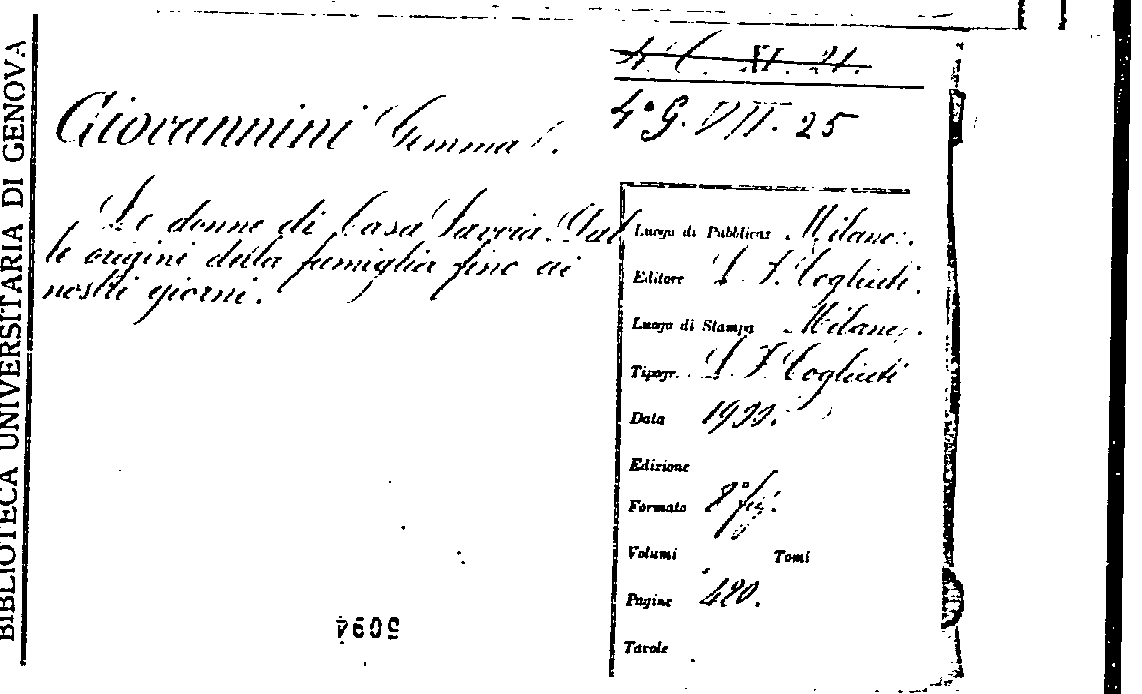 BIBLIOTECA UNIVERSITARIA DI GENOVA
4. C. XI. 21.
4° G. VII. 25
Giovannini Gemma
Le donne di Casa Savoia. Dal
le origini della famiglia fino ai
nostri giorni.
Luogo di Pubblicaz Milano.
Editore L. F. Cogliati.
Luogo di Stampa Milano.
Tipogr. L. F. Cogliati
Data
Edizione
Formato 8° fig.
Volumi Tomi
Pagine 420.
Tavole
5094